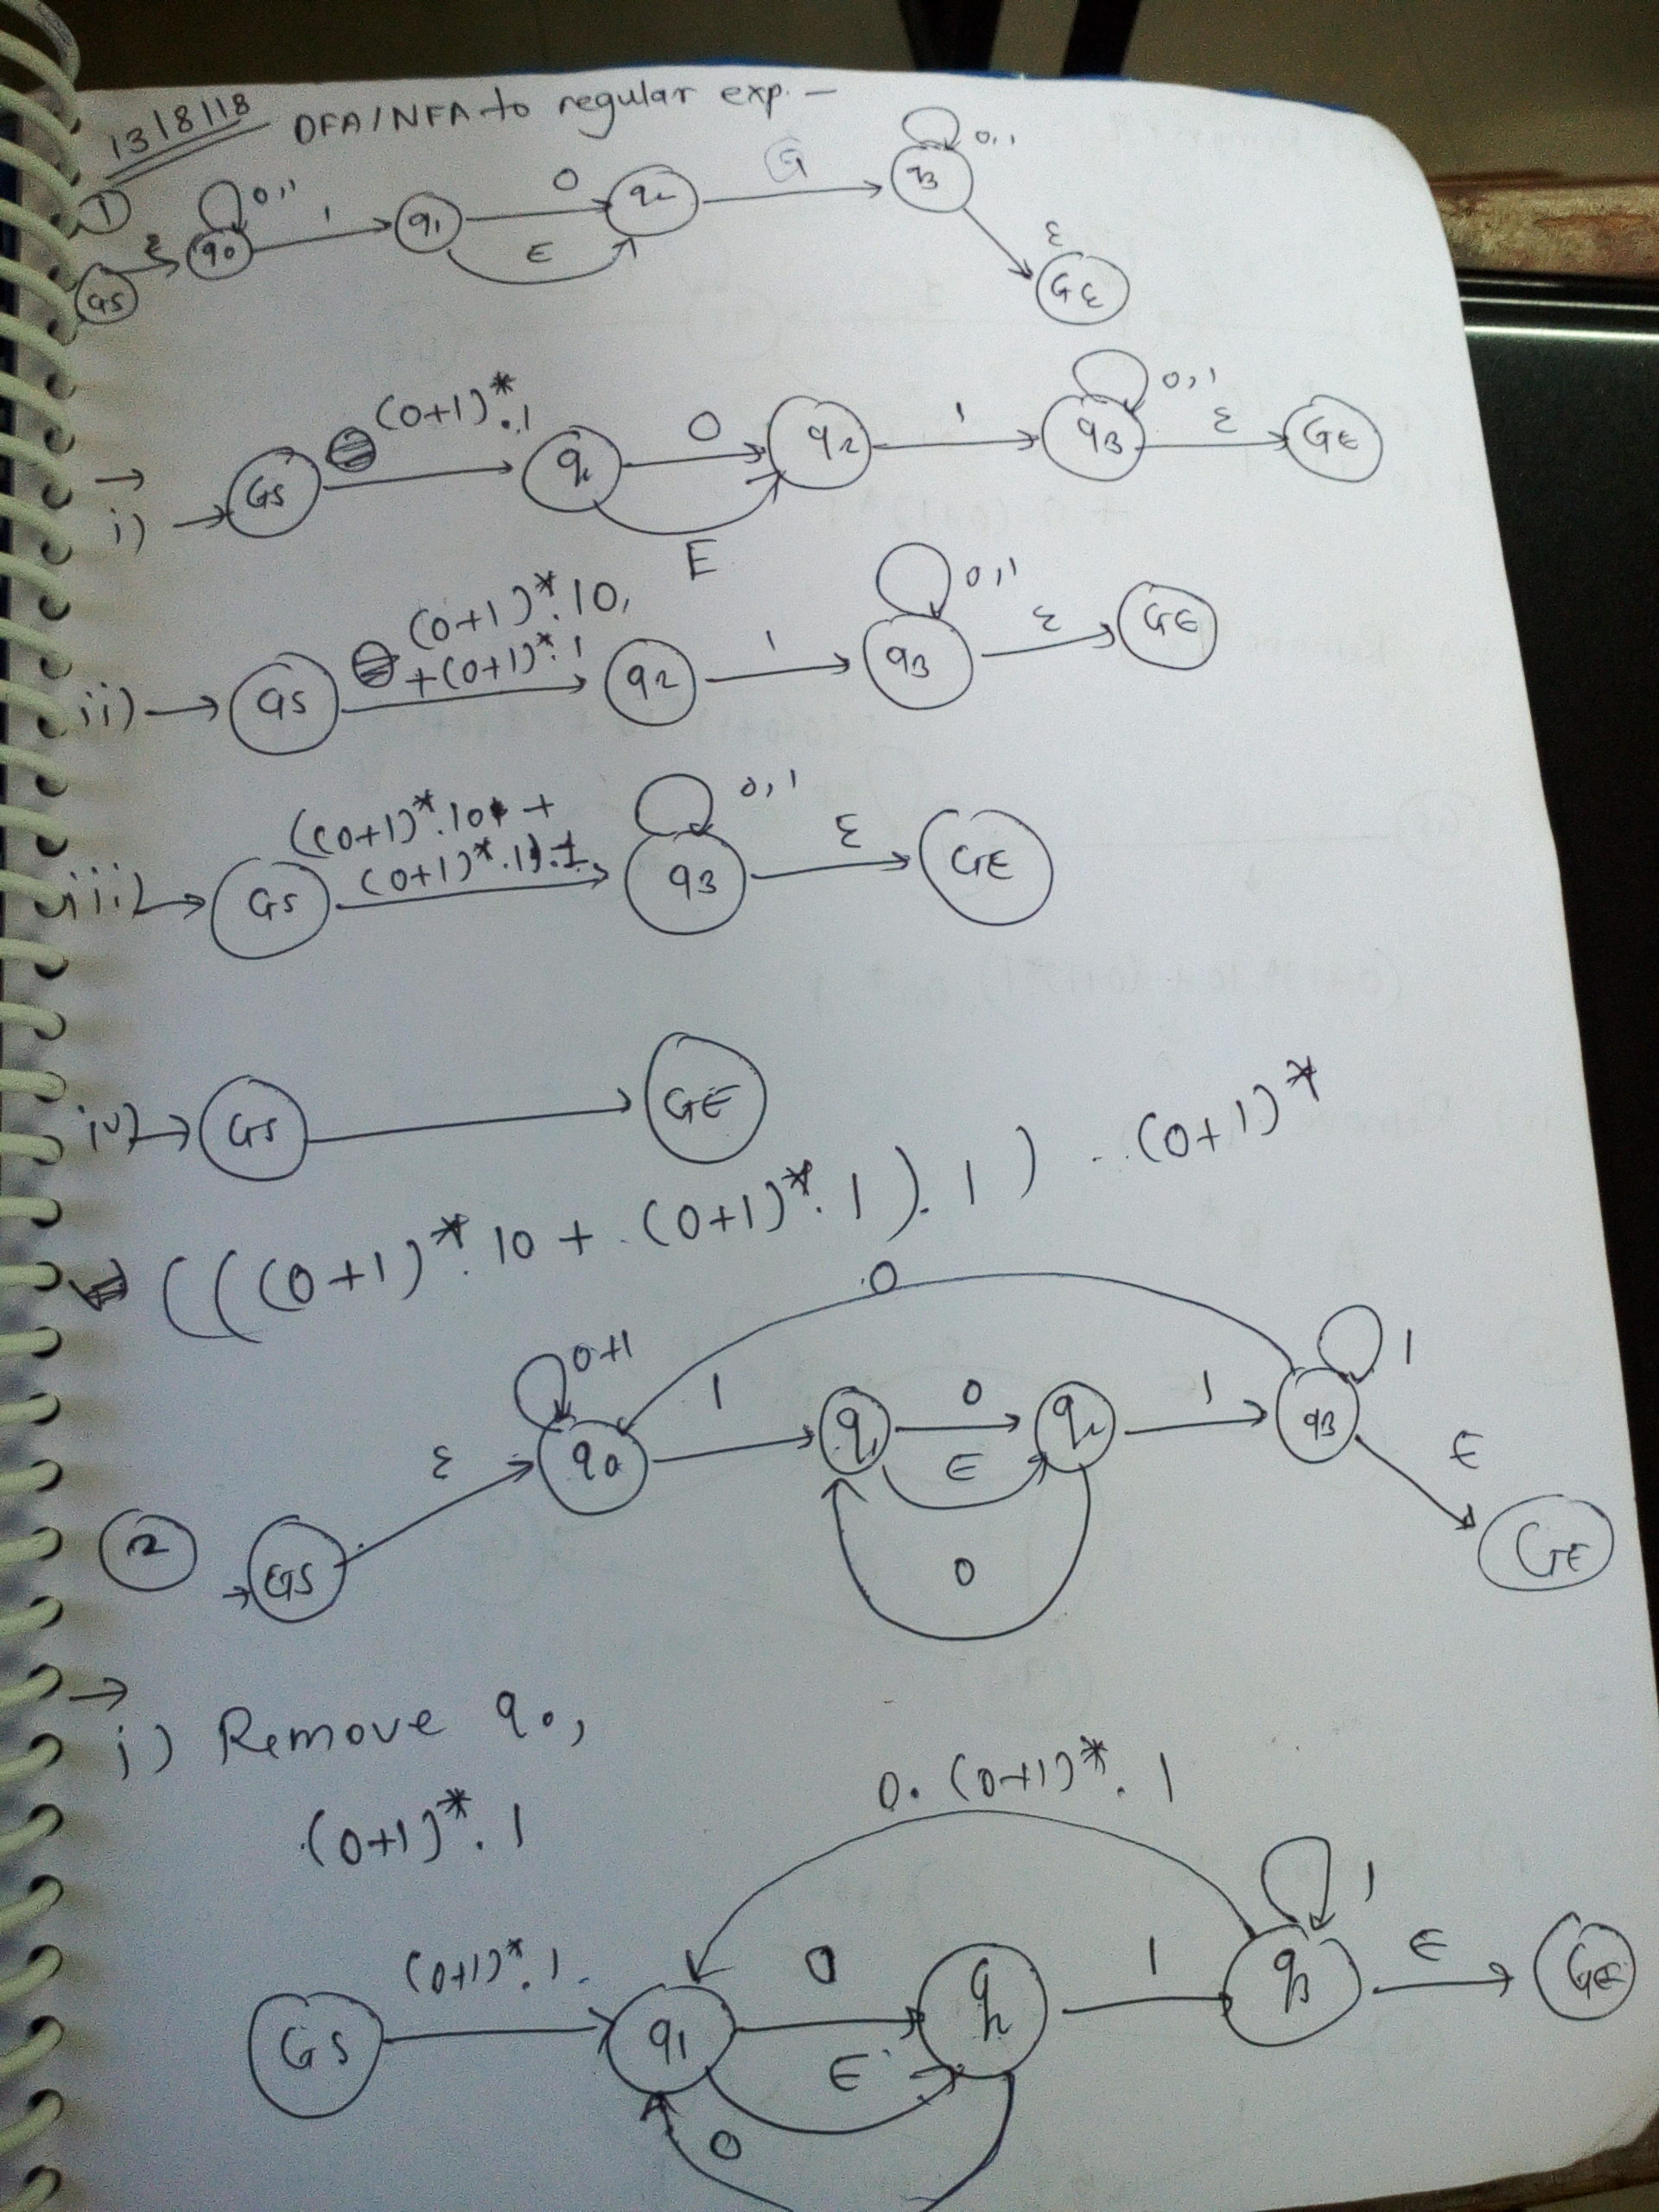 13/8/18 DFA/NFA to regular exp. —
①
GS ε q0 0,1 1 q1 0 ε q2 q3 0,1 ε GE
i) → GS (0+1)*.1 q1 0 E q2 1 q3 0,1 ε GE
ii) → GS (0+1)*.10, +(0+1)*.1 q2 1 q3 0,1 ε GE
iii) → GS ((0+1)*.10 + (0+1)*.1).1 q3 0,1 ε GE
iv) → GS → GE
(((0+1)*.10 + (0+1)*.1).1) . (0+1)*
② → GS ε q0 0+1 1 q1 0 ε q2 0 1 q3 1 0 ε GE
→
i) Remove q0,
(0+1)*.1
0.(0+1)*.1
GS (0+1)*.1. q1 0 ε 0 q2 1 q3 1 ε GE